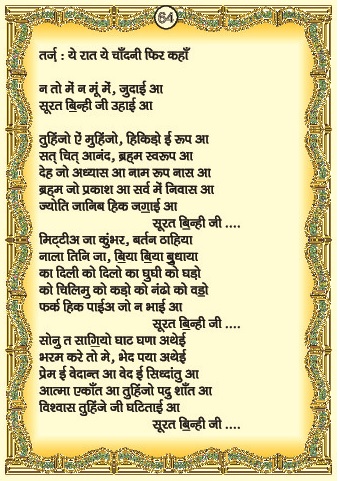 64
तर्ज़ : ये रात ये चाँदनी फिर कहाँ
न तो में न मूं में, जुदाई आ
सूरत बि॒न्ही जी उहाई आ
तुहिंजो ऐं मुहिंजो, हिकिड़ो ई रूप आ
सत् चित् आनंद, ब्रह्म स्वरूप आ
देह जो अध्यास आ नाम रूप नास आ
ब्रह्म जो प्रकाश आ सर्व में निवास आ
ज्योति जानिब हिक जगा॒ई आ
सूरत बि॒न्ही जी ....
मिट्टीअ जा कुंभर, बर्तन ठाहिया
नाला तिनि जा, बि॒या बि॒या बु॒धाया
का दिली को दिलो का घुघी को घड़ो
को चिलिमु को कड़ो को नंढो को वडो॒
फर्क हिक पाईअ जो न भाई आ
सूरत बि॒न्ही जी ....
सोनु त सागि॒यो घाट घणा अथेई
भरम करे तो मे, भेद पया अथेई
प्रेम ई वेदान्त आ वेद ई सिध्दांतु आ
आत्मा एकाँत आ तुहिंजो पदु शाँत आ
विश्वास तुहिंजे जी घटिताई आ
सूरत बि॒न्ही जी ....